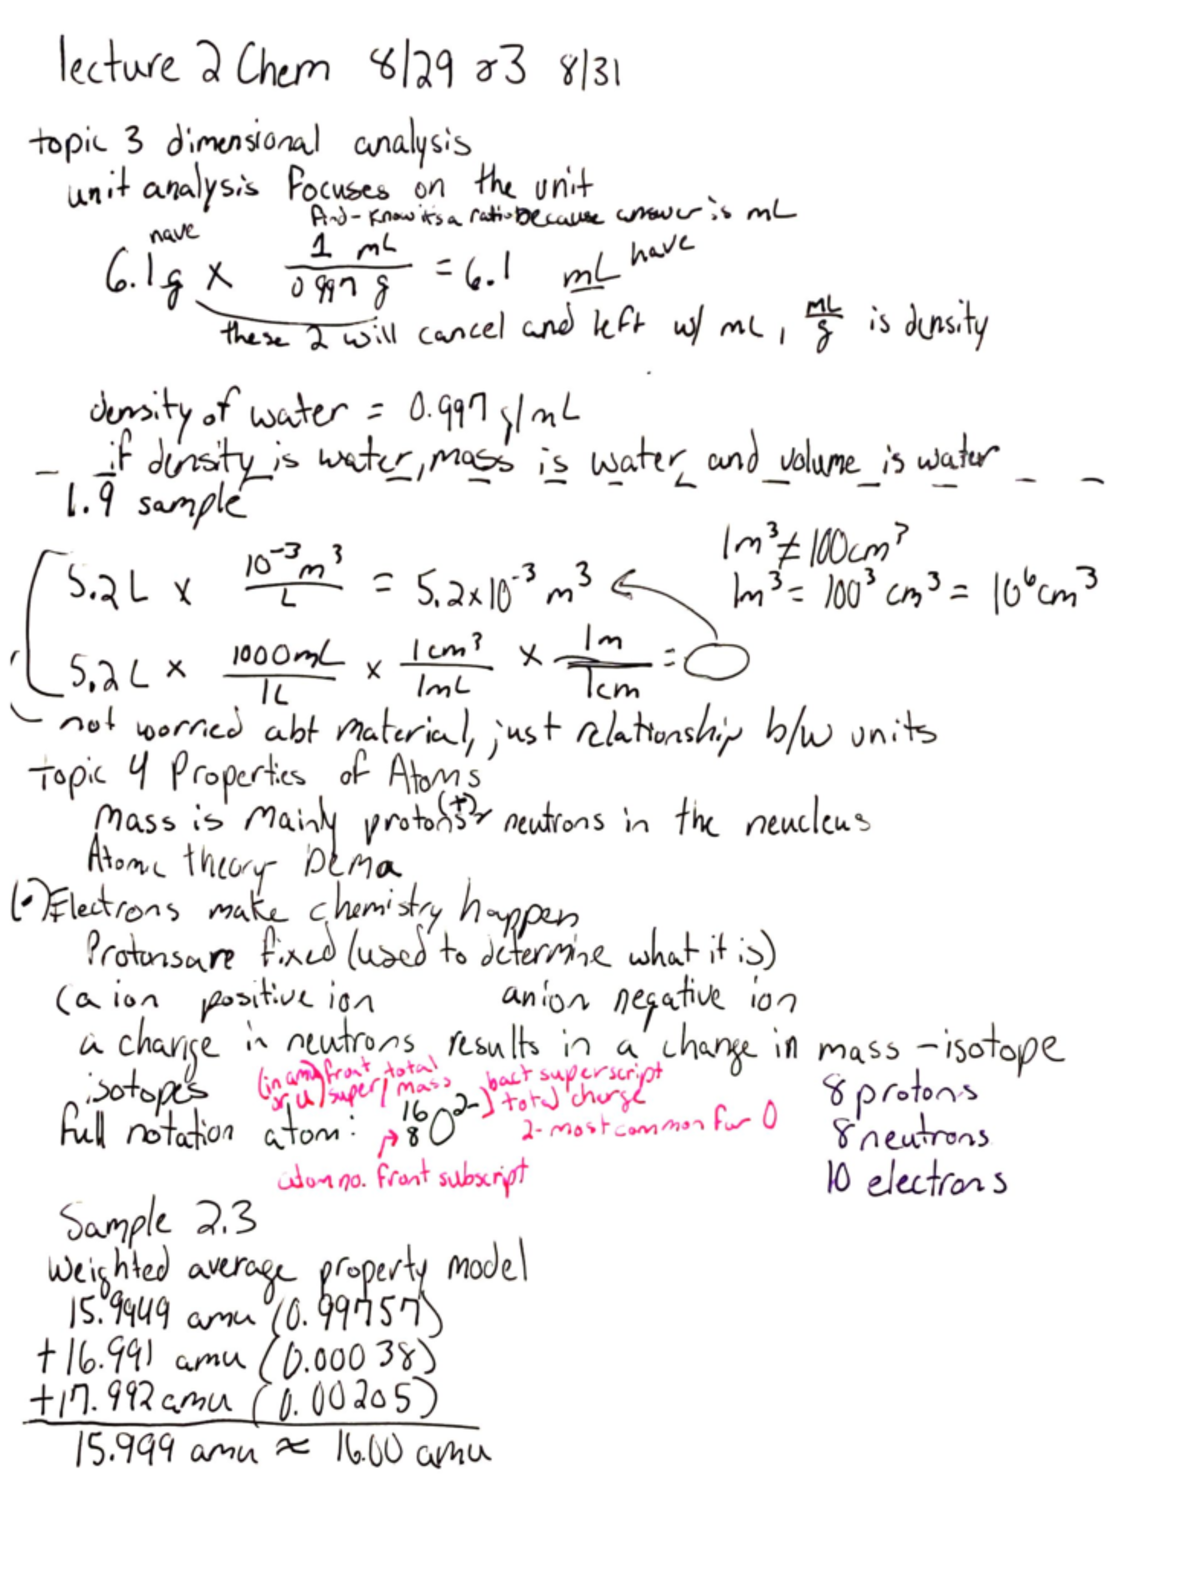 lecture 2 Chem 8/29 & 3 8/31
topic 3 dimensional analysis
unit analysis focuses on the unit
And - know its a ratio because answer is mL
have
6.1g x 1 mL / 0.997 g = 6.1 mL have
these 2 will cancel and left w/ mL, mL/g is density
density of water = 0.997 g/mL
if density is water, mass is water, and volume is water
1.9 sample
1m³ ≠ 100cm³
5.2L x 10⁻³m³ / L = 5.2x10⁻³ m³
1m³ = 100³ cm³ = 10⁶cm³
5.2L x 1000mL / 1L x 1cm³ / 1mL x 1m / 1cm =
not worried abt material, just relationship b/w units
Topic 4 Properties of Atoms
Mass is mainly protons(+) neutrons in the neucleus
Atomic theory Dema
(-) Electrons make chemistry happen
Protons are fixed (used to determine what it is)
Caion positive ion anion negative ion
a change in neutrons results in a change in mass - isotope
isotopes
(in amu or u) front total super/mass
back superscript total charge
8 protons
full notation atom: ¹⁶₈O²⁻
2- most common for O
8 neutrons
atom no. front subscript
10 electrons
Sample 2.3
Weighted average property model
15.9949 amu (0.99757)
+16.991 amu (0.00038)
+17.992 amu (0.00205)
15.999 amu ≈ 16.00 amu